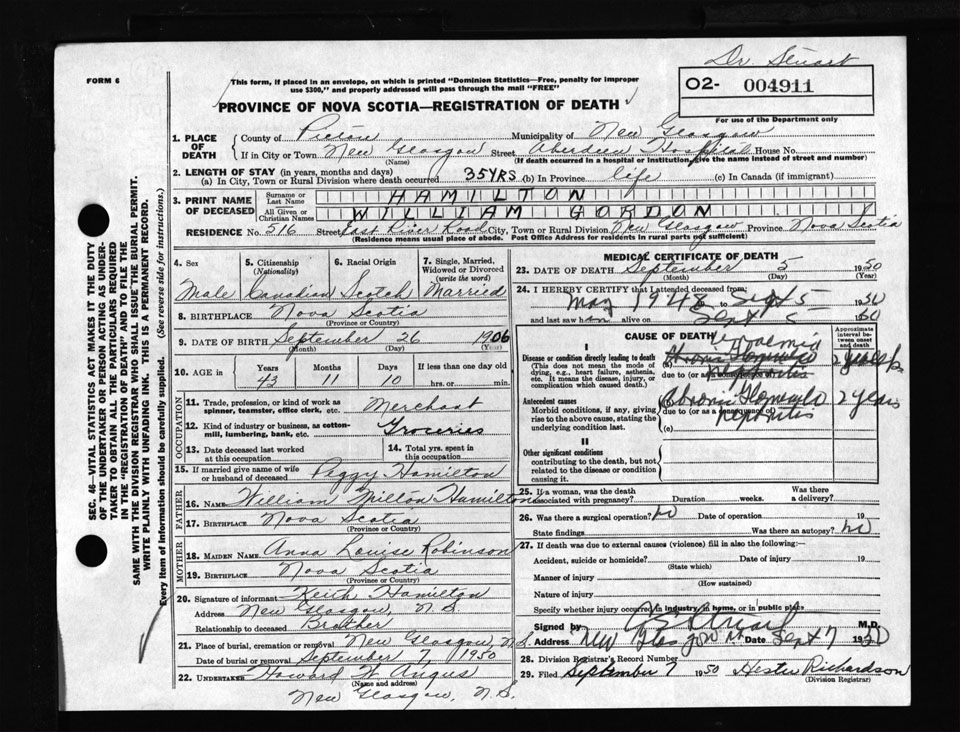 Dr. Stuart
FORM 6
This form, if placed in an envelope, on which is printed "Dominion Statistics—Free, penalty for improper
use $300," and properly addressed will pass through the mail "FREE"
O2- 004911
For use of the Department only
PROVINCE OF NOVA SCOTIA—REGISTRATION OF DEATH
1. PLACE OF DEATH
County of Pictou Municipality of New Glasgow
If in City or Town New Glasgow Street Aberdeen Hospital House No.
(Name) (If death occurred in a hospital or institution, give the name instead of street and number)
2. LENGTH OF STAY (in years, months and days)
(a) In City, Town or Rural Division where death occurred 35 YRS (b) In Province life (c) In Canada (if immigrant)
3. PRINT NAME OF DECEASED
Surname or Last Name HAMILTON
All Given or Christian Names WILLIAM GORDON
RESIDENCE No. 516 Street East River Road City, Town or Rural Division New Glasgow Province Nova Scotia
(Residence means usual place of abode. Post Office Address for residents in rural parts not sufficient)
4. Sex Male
5. Citizenship (Nationality) Canadian
6. Racial Origin Scotch
7. Single, Married, Widowed or Divorced (write the word) Married
8. BIRTHPLACE Nova Scotia
(Province or Country)
9. DATE OF BIRTH September 26 1906
(Month) (Day) (Year)
10. AGE Years 43 Months 11 Days 10 If less than one day old hrs. or min.
OCCUPATION
11. Trade, profession, or kind of work as spinner, teamster, office clerk, etc. Merchant
12. Kind of industry or business, as cotton-mill, lumbering, bank, etc. Groceries
13. Date deceased last worked at this occupation
14. Total yrs. spent in this occupation
15. If married give name of wife or husband of deceased Peggy Hamilton
FATHER
16. NAME William Hamilton
17. BIRTHPLACE Nova Scotia
(Province or Country)
MOTHER
18. MAIDEN NAME Anna Louise Robinson
19. BIRTHPLACE Nova Scotia
(Province or Country)
20. Signature of informant Keith Hamilton
Address New Glasgow, N.S.
Relationship to deceased Brother
21. Place of burial, cremation or removal New Glasgow, N.S.
Date of burial or removal September 7, 1950
22. UNDERTAKER Howard W. Angus
(Name and address)
New Glasgow, N.S.
MEDICAL CERTIFICATE OF DEATH
23. DATE OF DEATH September 5 1950
(Month) (Day)
24. I HEREBY CERTIFY that I attended deceased from:
May 1948 to Sept 5 1950
and last saw h im alive on Sept 5 1950
CAUSE OF DEATH
Approximate interval between onset and death
I
Disease or condition directly leading to death
(This does not mean the mode of dying, e.g., heart failure, asthenia, etc. It means the disease, injury, or complication which caused death.
(a) Uraemia
Chronic Glomerulo
due to (or as a consequence of)
Nephritis
2 years
Antecedent causes
Morbid conditions, if any, giving rise to the above cause, stating the underlying condition last.
(b) Chronic Glomerulo 2 years
due to (or as a consequence of)
nephritis
(c)
II
Other significant conditions
contributing to the death, but not related to the disease or condition causing it.
25. If a woman, was the death associated with pregnancy? Duration weeks. Was there a delivery?
26. Was there a surgical operation? No Date of operation 19
State findings Was there an autopsy? No
27. If death was due to external causes (violence) fill in also the following:—
Accident, suicide or homicide? Date of injury 19
(State which)
Manner of injury
(How sustained)
Nature of injury
Specify whether injury occurred in industry, in home, or in public place
Signed by Stuart M.D.
Address New Glasgow Date Sept 7 1950
28. Division Registrar's Record Number
29. Filed September 7 1950 Hester Richardson
(Division Registrar)
SEC. 46—VITAL STATISTICS ACT MAKES IT THE DUTY
OF THE UNDERTAKER OR PERSON ACTING AS UNDER-
TAKER TO OBTAIN ALL THE PARTICULARS REQUIRED
IN THE "REGISTRATION OF DEATH" AND TO FILE THE
SAME WITH THE DIVISION REGISTRAR WHO SHALL ISSUE THE BURIAL PERMIT.
WRITE PLAINLY WITH UNFADING INK. THIS IS A PERMANENT RECORD.
Every item of information should be carefully supplied. (See reverse side for instructions.)